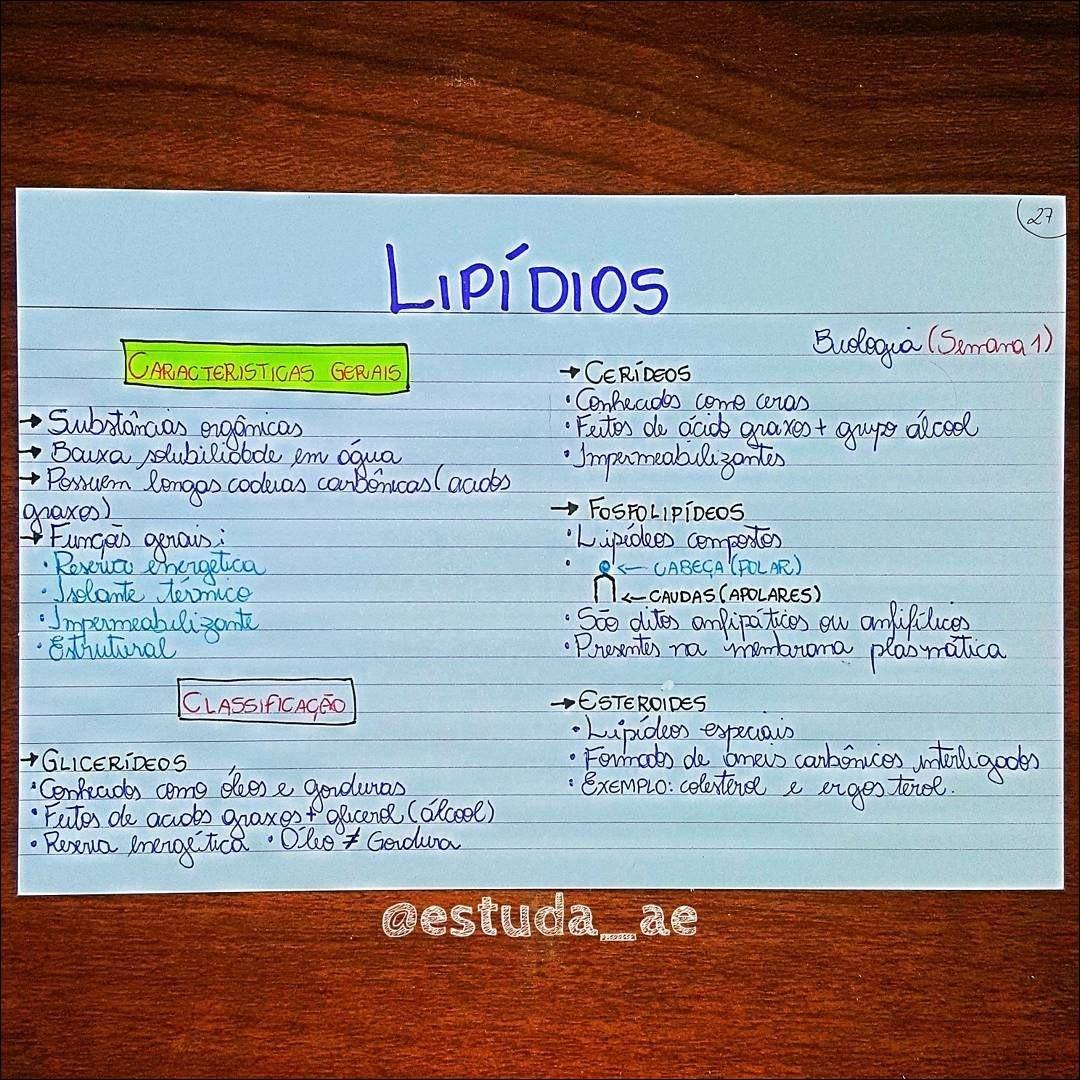 27
LIPÍDIOS
Biologia (Semana 1)
CARACTERISTICAS GERAIS
→ Substâncias orgânicas
→ Baixa solubilidade em água
→ Possuem longas cadeias carbônicas (acidos
graxos)
→ Funções gerais:
• Reserva energética
• Isolante térmico
• Impermeabilizante
• Estrutural
CLASSIFICAÇÃO
→ GLICERÍDEOS
• Conhecidos como óleos e gorduras
• Feitos de acidos graxos + glicerol (álcool)
• Reserva energética • Óleo ≠ Gordura
→ CERÍDEOS
• Conhecidos como ceras
• Feitos de ácido graxos + grupo álcool
• Impermeabilizantes
→ FOSFOLIPÍDEOS
• Lipídeos compostos
• ← CABEÇA (POLAR)
← CAUDAS (APOLARES)
• São ditos anfipáticos ou anfifílicos
• Presentes na membrana plasmática
→ ESTEROIDES
• Lipídeos especiais
• Formados de aneis carbônicos interligados
• EXEMPLO: colesterol e ergosterol.
@estuda_ae